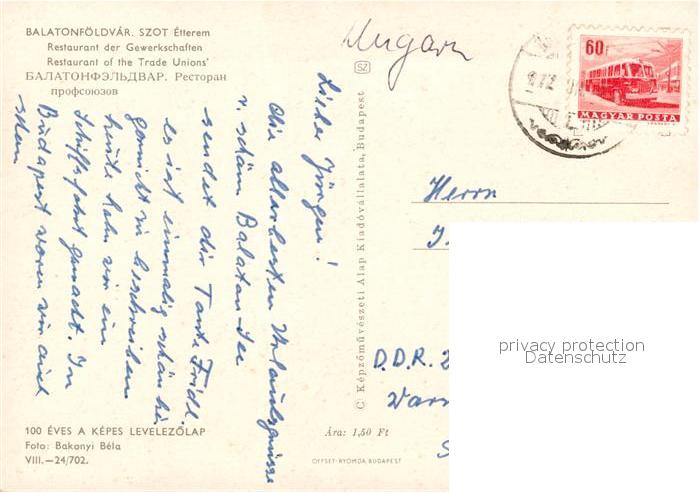 BALATONFÖLDVÁR. SZOT Étterem
Restaurant der Gewerkschaften
Restaurant of the Trade Unions'
БАЛАТОНФЭЛЬДВАР. Ресторан
профсоюзов
Ungarn
60f
MAGYAR POSTA
SZ
Lieber Jürgen!
Die allerbesten Urlaubsgrüsse
v. schön Balaton-See
sendet dir Tante Friedl.
es ist einmalig schön hi.
garnicht zu beschreiben
heute haben wir ein
Schiffsfahrt gemacht. In
Budapest waren wir auch
schon
C: Képzőművészeti Alap Kiadóvállalata, Budapest
Herrn
J.
privacy protection
Datenschutz
D.D.R. 2
War
S
100 ÉVES A KÉPES LEVELEZŐLAP
Foto: Bakonyi Béla
VIII.—24/702.
Ára: 1,50 Ft
OFFSET-NYOMDA, BUDAPEST